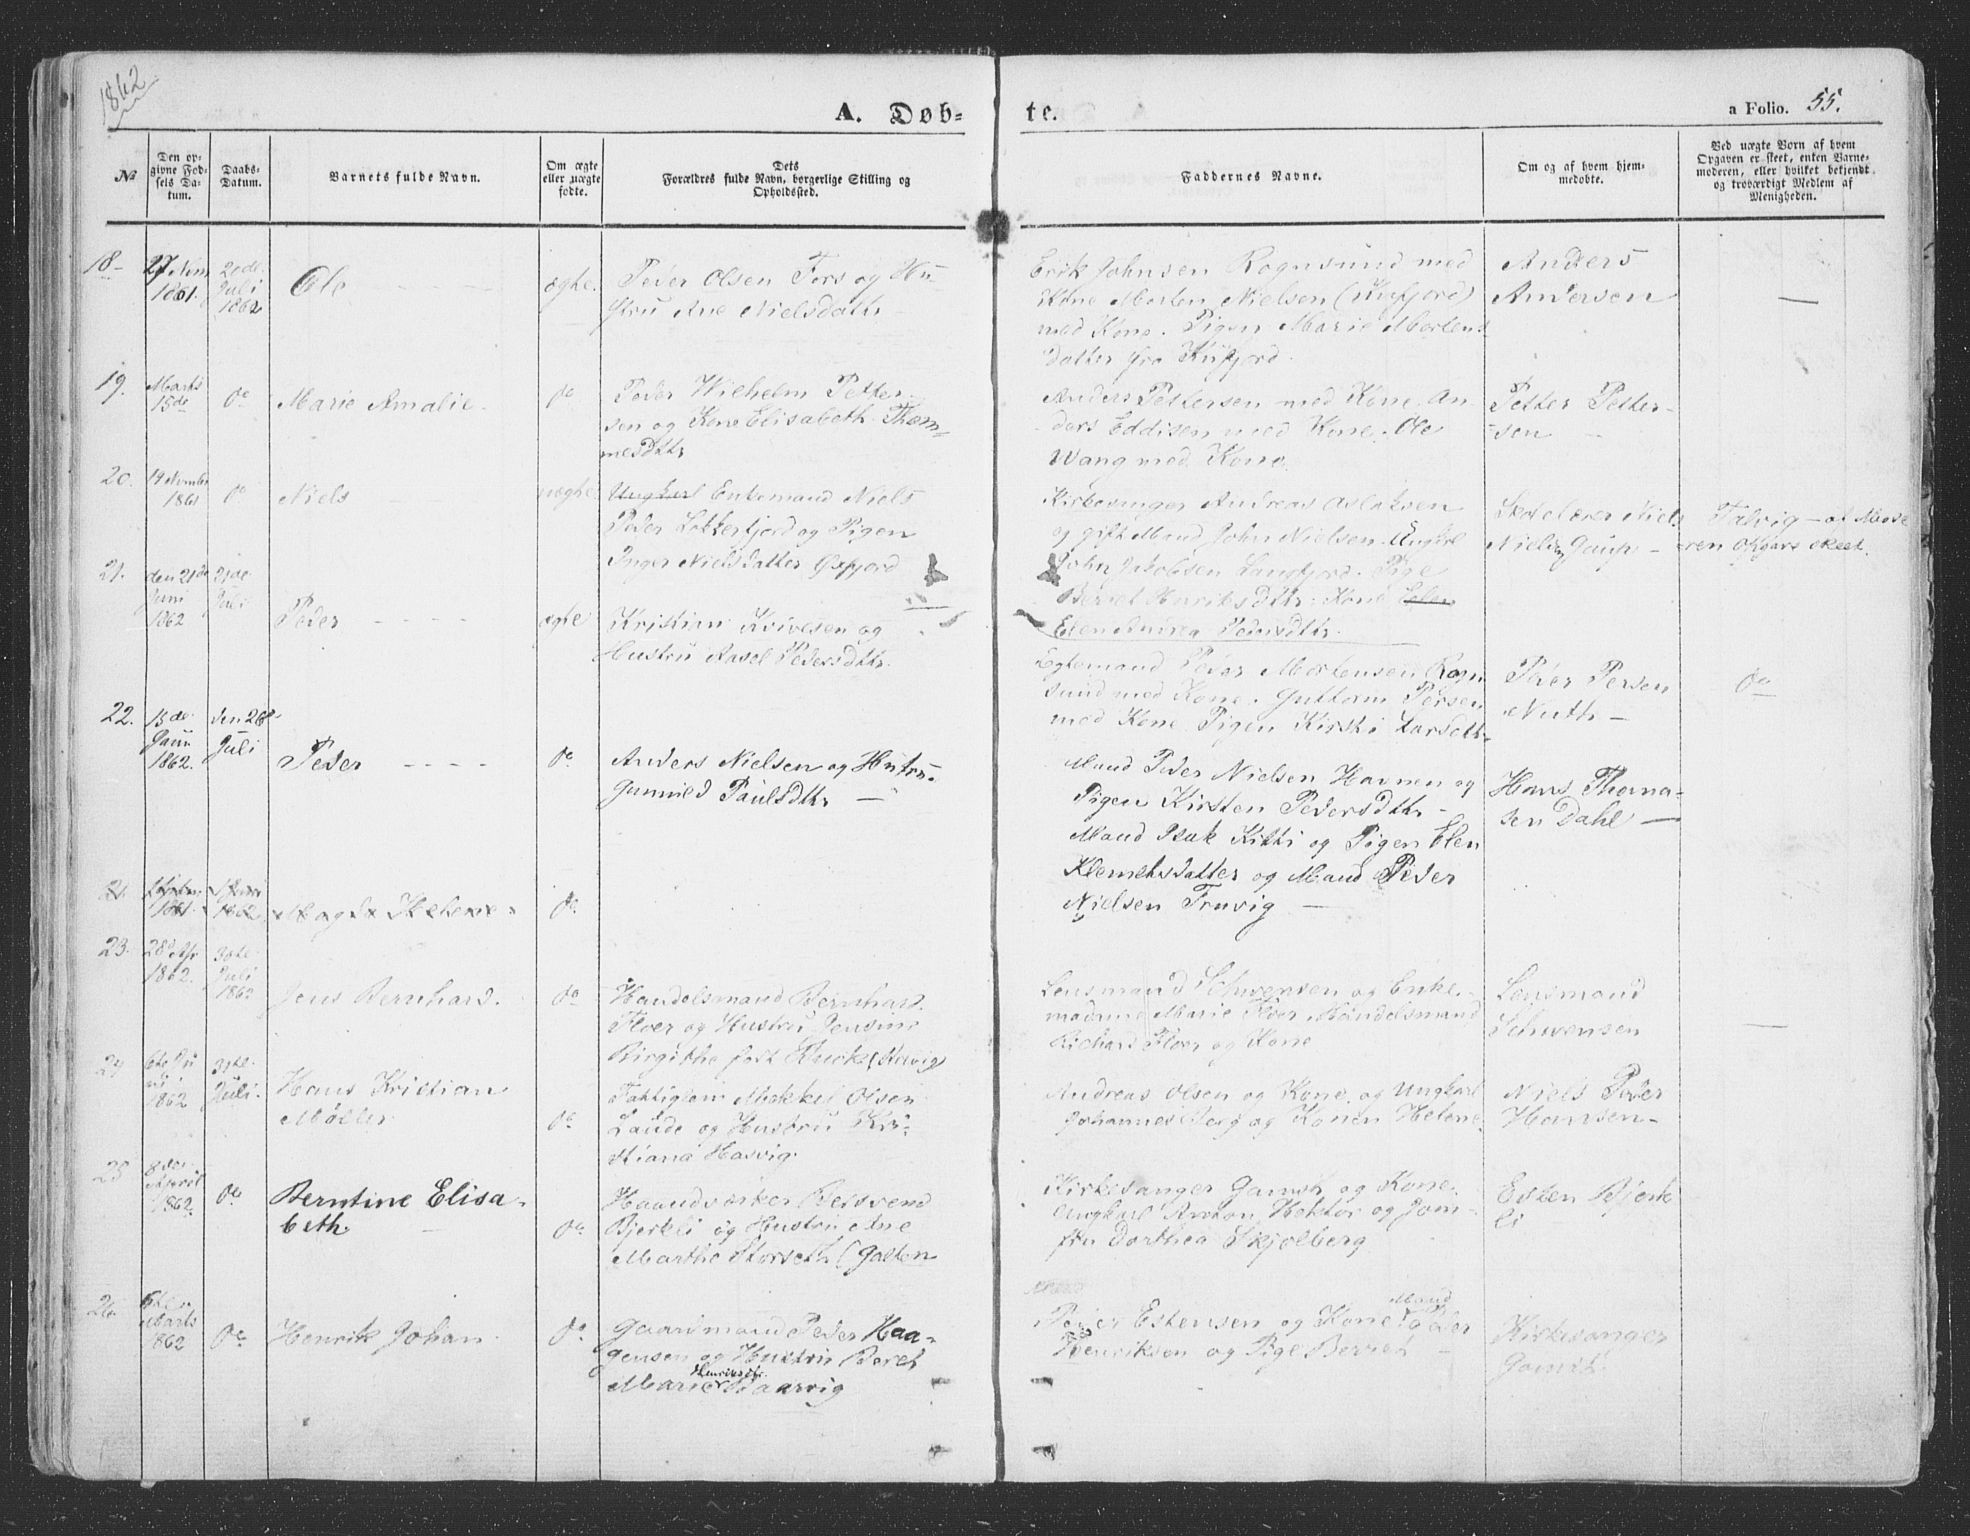 1862
A. Døb-
te.
a Folio. 55.
No
Den op-
givne Fød-
sels Da-
tum.
Daabs-
Datum.
Barnets fulde Navn.
Om ægte
eller uægte
fødte.
Dets
Forældres fulde Navn, borgerlige Stilling og
Opholdssted.
Faddernes Navne.
Om og af hvem hjem-
medøbte.
Ved uægte Børn af hvem
Opgaven er skeet, enten Barne-
moderen, eller hvilket bekjendt
og troværdigt Medlem af
Menigheden.
18
27 Nvm
1861.
20de
Juli
1862
Ole
ægte.
Peder Olsen Fors og Hu-
stru Ane Nielsdattr
Erik Johnsen Rognsund med
Kone Morten Nielsen (Kufjord)
med Kone. Pigen Marie Mortens
datter fra Küfjord.
Anders
Andersen
—
19.
Marts
15de
do
Marie Amalie.
do
Peder Wilhelm Petter-
sen og Kone Elisabeth Thom-
mesdttr
Anders Pettersen med Kone. An-
ders Eddisen med Kone. Ole
Wang med Kone
Petter Petter-
sen
20.
14 Novmber
1861
do
Niels
uægte
Ungkarl Enkemand Niels
Peder Lokkerfjord og Pigen
Inger Nielsdatter Øxfjord
Kirkesanger Andreas Aslaksen
og gift Mand John Nielsen. Ungkrl
John Jakobsen Langfjord. Pige
Berret Henriksdttr. Kone Elen
Elen Anirea Pedersdttr.
Skolelærer Niels
Nielsen Gaup
Talvig — af Mode
ren Opgave skeet.
21.
den 21de
Juni
1862
21de
Juli
Peder
ægte
Kristian Kvivesen og
Hustru Aasel Pedersdttr.
Egtemand Peder Mortensen Rogn
sund med Kone. Guttorm Persen
med Kone Pigen Kirsti Larsdttr
Peer Persen
Nuth
do
22.
15de
Jann
1862.
den 26de
Juli
Peder
do
Anders Nielsen og Hustru
Gunnild Paulsdttr
Mand Peder Nielsen Havnen og
Pigen Kirsten Pedersdttr
Mand Isak Kitti og Pigen Elen
Klemetsdatter og Mand Peder
Nielsen Truvig
Hans Thoma-
sen Dahl
1861.
1862
Magda Helene
do
23.
28d Apr
1862.
30te
Juli
1862
Jens Bernhard.
do
Handelsmand Bernhard
Floer og Hustru Jensine
Birgithe født Buck
Lensmand Schwensen og Enke-
madame Marie Floer. Handelsmand
Richard Floer og Kone
Lensmand
Schwensen
—
24
6te Ju
ni
1862
31te
Juli.
Hans Kristian
Møller
do
Fattiglem Mikkel Olsen
Laude og Hustru Kri-
stiana Hasvig.
Andreas Olsen og Kone, og Ungkarl
Johannes Berg og Konen Helene.
Niels Peder
Hansen
25
8de
April
1862.
do
Berntine Elisa-
beth.
do
Haandværker Beisvend
Bjerkli og Hustru Ane
Marthe Storseth (Galten
Kirkesanger Gamst og Kone.
Ungkarl Anton Hektor og Jom-
fru Dorthea Skjelberg
Esten Bjerk
li
26
6te
Marts
1862
do
Henrik Johan
do
Gaardmand Peder Haa-
gensen og Hustru Beret
Henriksdt.
Marie Baarvig
Mand
Peder Estensen og Kone Peder
Henriksen og Pige Berret
Kirkesanger
Gamst